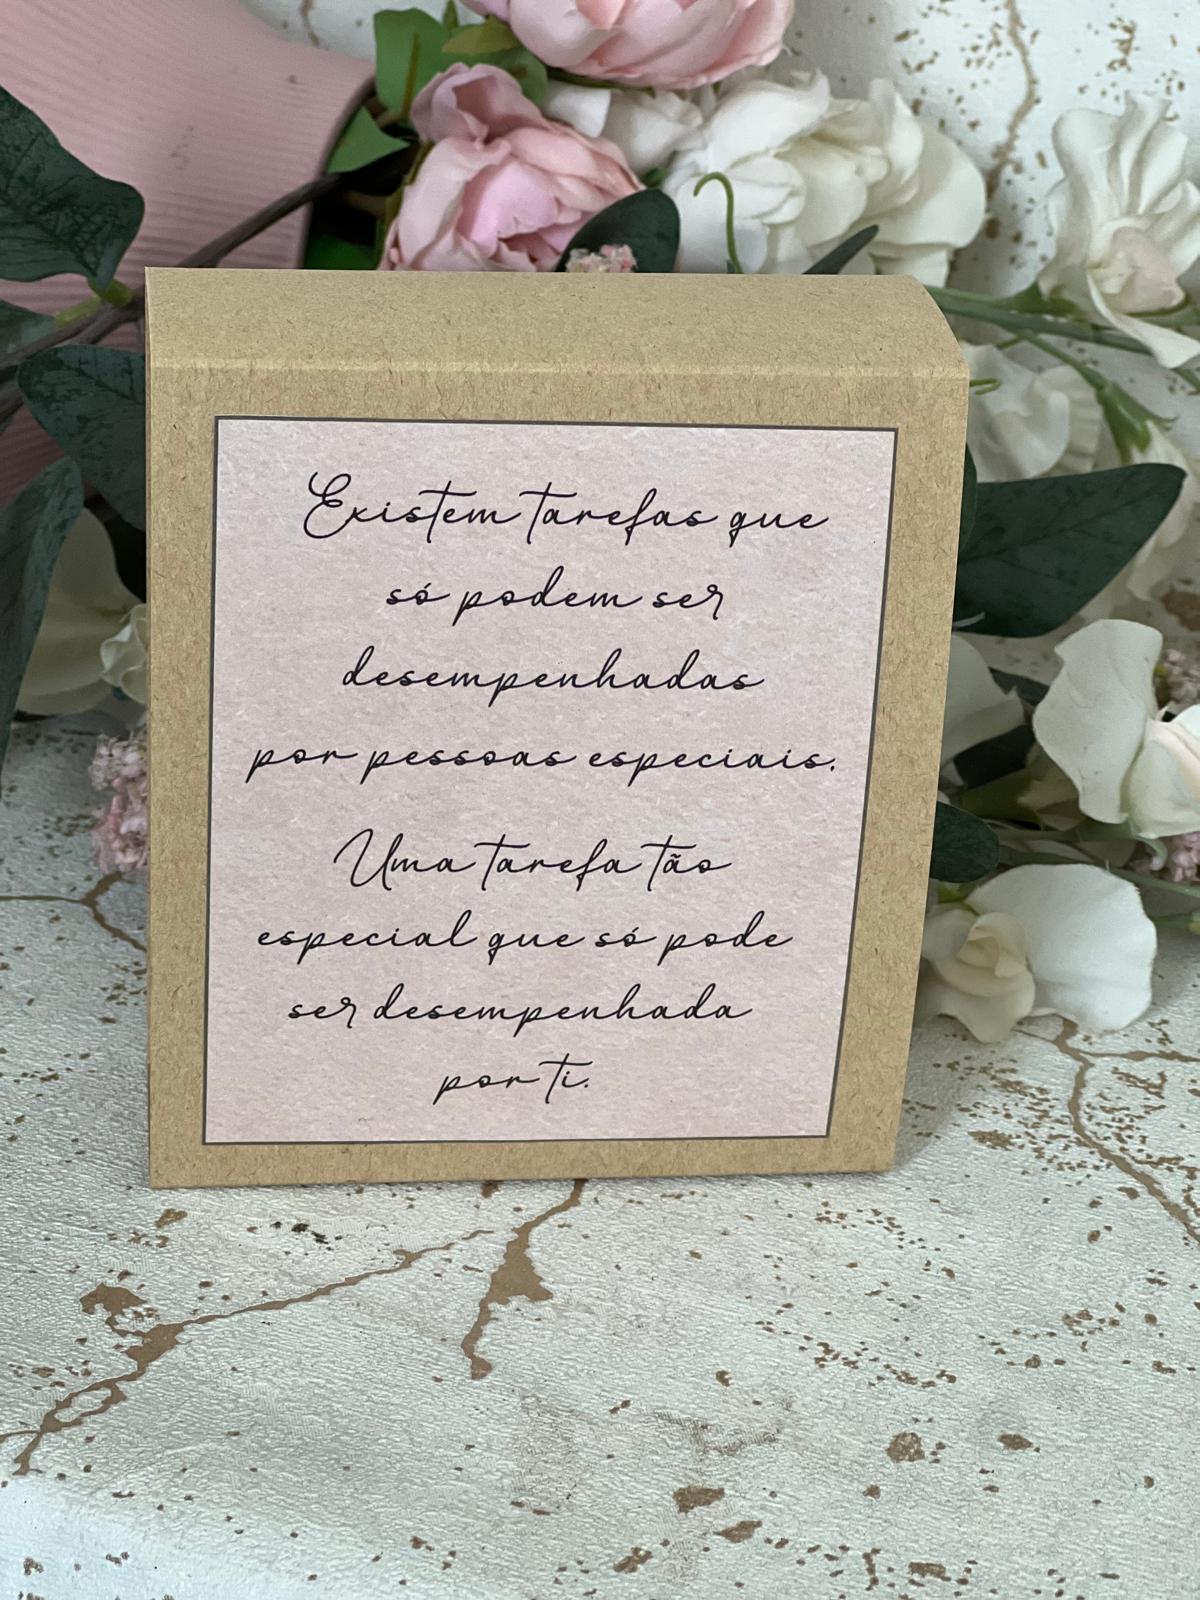 Existem tarefas que
só podem ser
desempenhadas
por pessoas especiais.
Uma tarefa tão
especial que só pode
ser desempenhada
por ti.